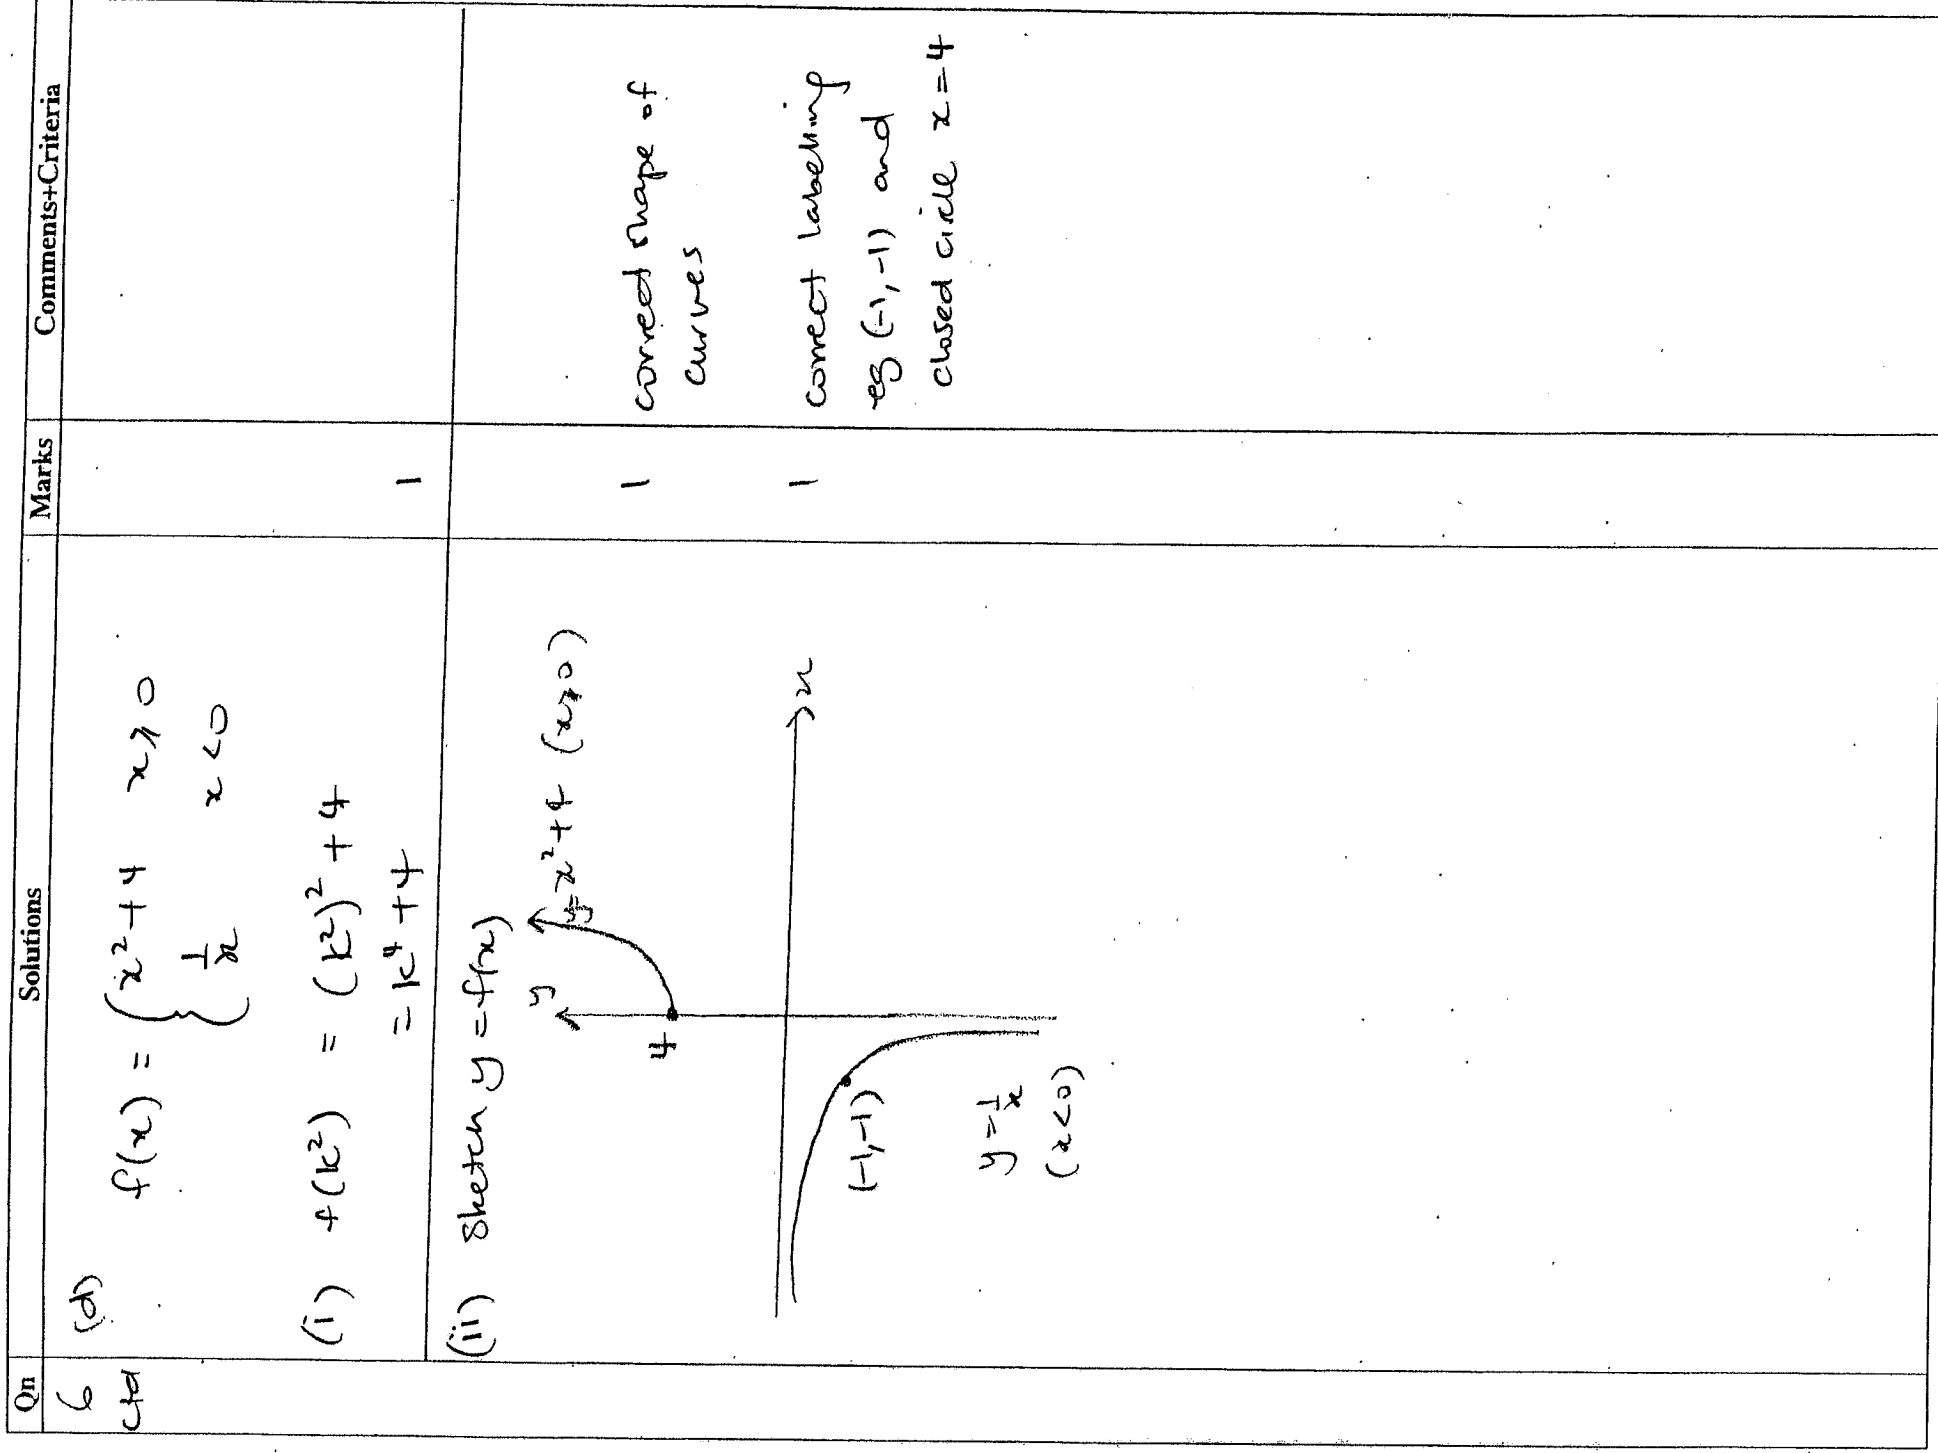 Qn Solutions Marks Comments+Criteria
6 (d) f(x) = { x²+4 x⩾0
ctd 1/x x<0
(i) f(k²) = (k²)² + 4
= k⁴ + 4 1
(ii) Sketch y=f(x)
y
y=x²+4 (x⩾0)
4
x
(-1,-1)
y=1/x
(x<0)
1 correct shape of
curves
1 correct labelling
eg (-1,-1) and
closed circle x=4